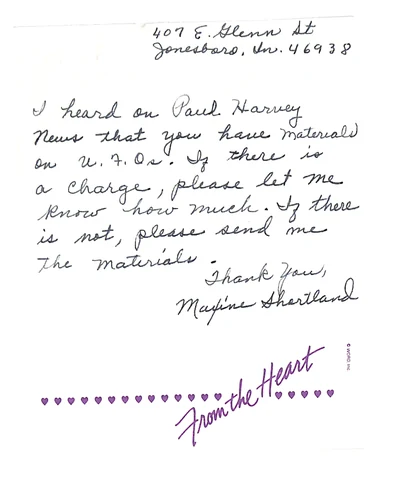 407 E. Glenn St
Jonesboro, In. 46938
I heard on Paul Harvey
News that you have materials
on U.F.Os. If there is
a charge, please let me
know how much. If there
is not, please send me
the materials.
Thank You,
Maxine Shortland
From the Heart